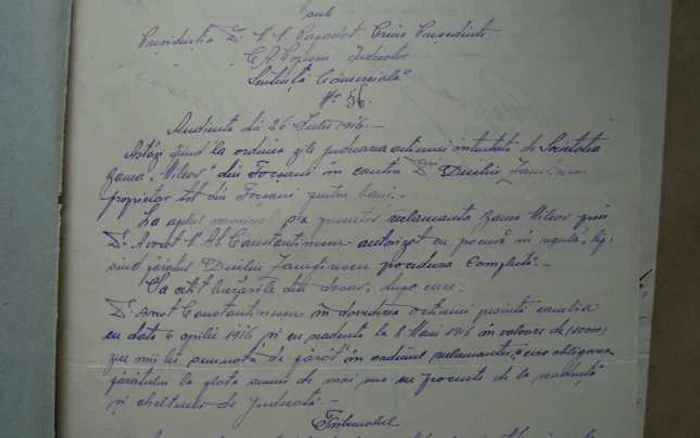 sub
Președenția D. N. N. Prim Președinte
C. A. Popescu Judecător
Sentință Comercială
Nº 56.
Audiența din 26 Iulie 1916.—
Astăzi fiind la ordinea zilei judecarea acțiunei intentată de Societatea
Banca „Milcov" din Focșani în contra Dlui Duiliu Zamfirescu
proprietar tot din Focșani pentru bani.—
La apelul nominal s'a prezentat reclamanta Banca Milcov prin
D. Avocat N. Al. Constantinescu autorizat cu procură în regulă, lip-
sind pârâtul Duiliu Zamfirescu procedura complectă.—
S'a citit lucrările din dosar, după care:
D. Avocat Constantinescu în dovedirea acțiunei prezintă cambia
cu data 6 aprilie 1916 și cu scadența la 8 Maiu 1916 în valoare de (10000)
zece mii lei semnată de pârât în ordinul reclamantei, cere obligarea
pârâtului la plata sumei de mai sus cu procente de la scadență
și cheltueli de judecată.—
Tribunalul